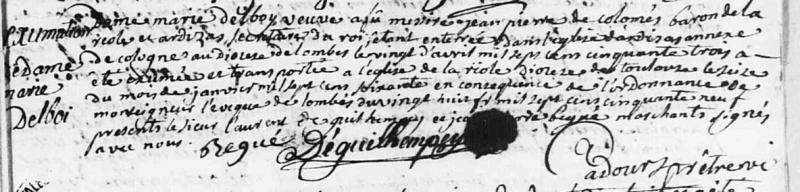 Exhumation
de dame
marie
Delboi
dame marie delboy veuve a fu messire jean pierre de colomés baron de la
riole et ardizas, secretaire du roi, etant enterrée dans l'eglise dardizas annexe
de cologne au dioceze de lombes le vingt d'avril mil sept cens cinquante trois a
été exumée et transportée a l'eglise de la riole dioceze de toulouze le seize
du mois de janvier mil sept cens soixante en consequence de l'ordonnance de
monseigneur l'eveque de lombés du vingt huit mil sept cens cinquante neuf
presents le sieur laurent deguilhempey et begué marchants signés
avec nous. Begué Déguilhempey
adours prêtre vi